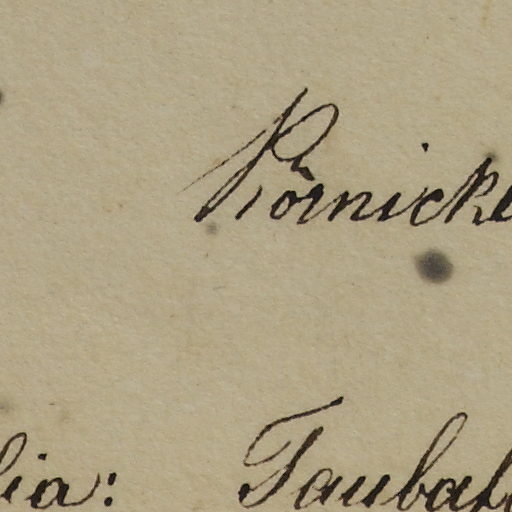 Körnicke
lia: Taubah